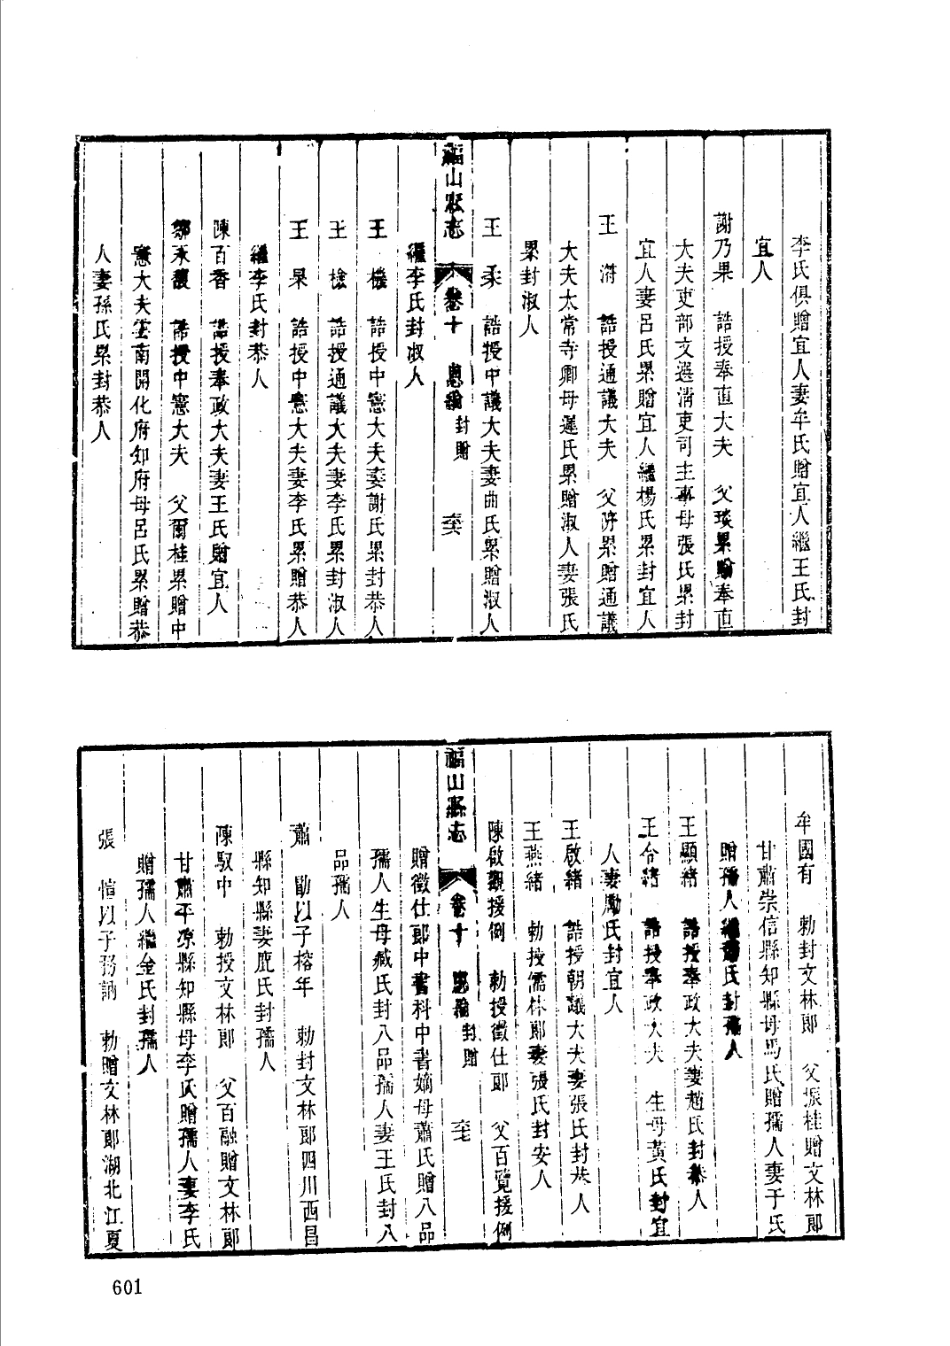 李氏俱贈宜人妻牟氏贈宜人繼王氏封
宜人
謝乃果　誥授奉直大夫　父琰累贈奉直
大夫吏部文選淸吏司主事母張氏累封
宜人妻呂氏累贈宜人繼楊氏累封宜人
王　誥授通議大夫　父累贈通議
大夫太常寺卿母遲氏累贈淑人妻張氏
累封淑人
王　誥授中議大夫妻曲氏累贈淑人
福山縣志　卷十　恩綸　封贈
繼李氏封淑人
王　誥授中憲大夫妻謝氏累封恭人
王　檢　誥授通議大夫妻李氏累封淑人
王　杲　誥授中憲大夫妻李氏累贈恭人
繼李氏封恭人
陳百香　誥授奉政大夫妻王氏贈宜人
鄒永　誥授中憲大夫　父爾桂累贈中
憲大夫雲南開化府知府母呂氏累贈恭
人妻孫氏累封恭人
牟國有　勅封文林郎　父振桂贈文林郎
甘肅崇信縣知縣母馬氏贈孺人妻于氏
贈孺人繼蕭氏封孺人
王顯緒　誥授奉政大夫妻趙氏封恭人
王令緒　誥授奉政大夫　生母黃氏封宜
人妻勵氏封宜人
王啟緒　誥授朝議大夫妻張氏封恭人
王燕緒　勅授儒林郎妻張氏封安人
陳啟觀援例　勅授徵仕郎　父百覽援例
福山縣志　卷十　恩綸　封贈
贈徵仕郎中書科中書嫡母蕭氏贈八品
孺人生母臧氏封八品孺人妻王氏封八
品孺人
蕭　勖以子榕年　勅封文林郎四川西昌
縣知縣妻鹿氏封孺人
陳馭中　勅授文林郎　父百融贈文林郎
甘肅平凉縣知縣母李氏贈孺人妻李氏
贈孺人繼金氏封孺人
張　愷以子　勅贈文林郎湖北江夏
601